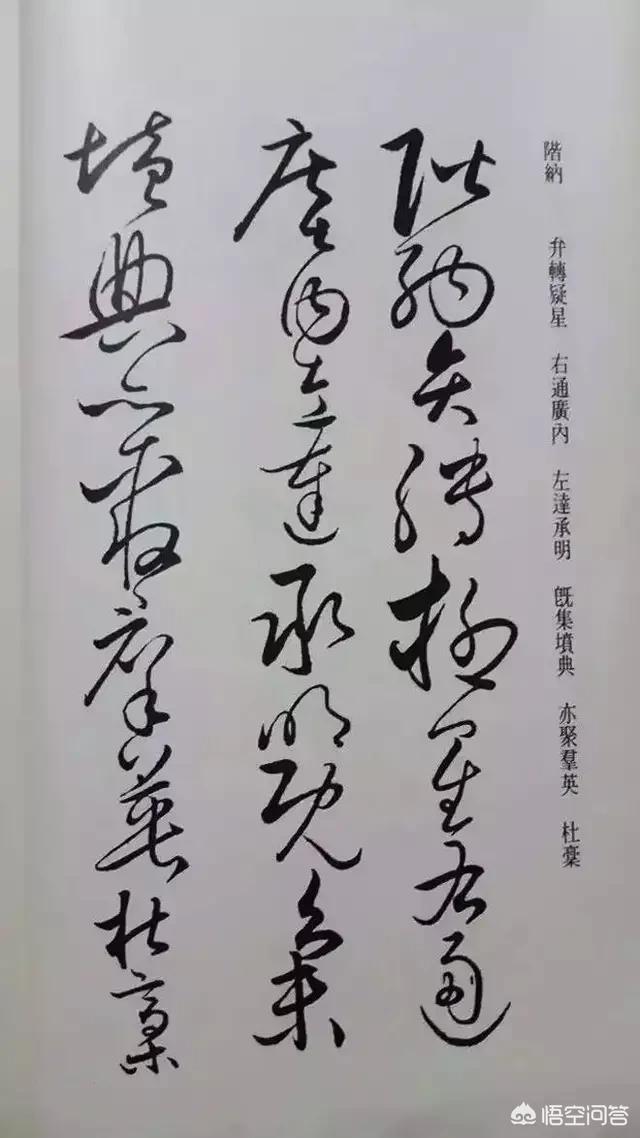 階納　弁轉疑星　右通廣內　左達承明　旣集墳典　亦聚羣英　杜稾
階納弁轉疑星右通
廣內左達承明旣集
墳典亦聚羣英杜稾
悟空问答